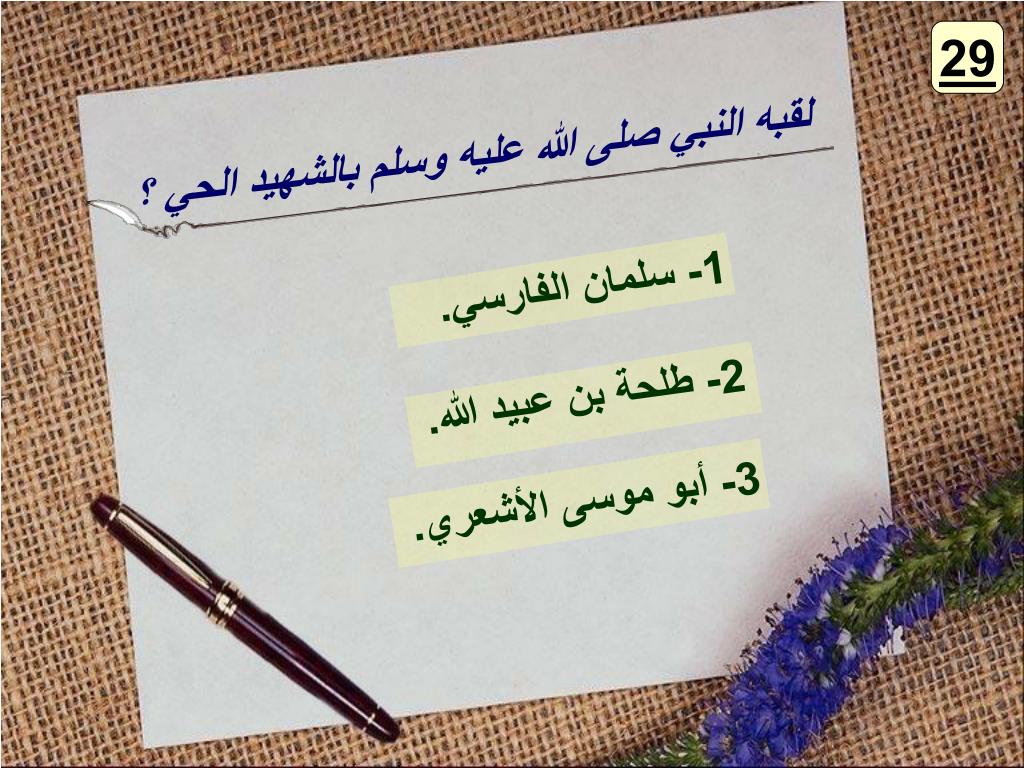 29
لقبه النبي صلى الله عليه وسلم بالشهيد الحي ؟
1- سلمان الفارسي.
2- طلحة بن عبيد الله.
3- أبو موسى الأشعري.